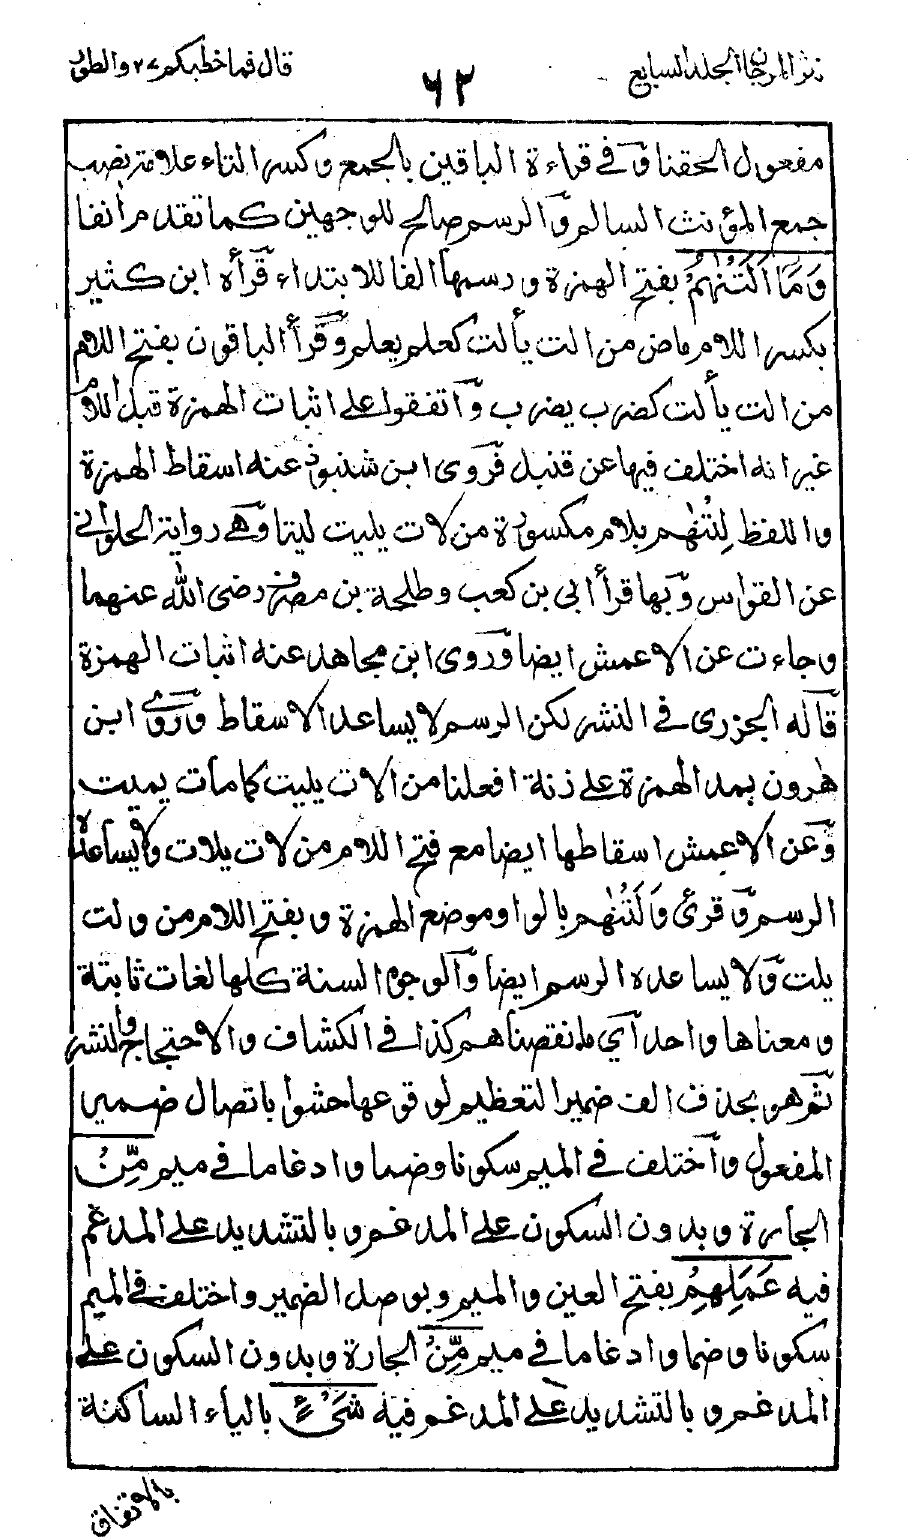 نثر المرجان الجلد السابع
٦٢
قال فما خطبكم ٢٧ والطور
مفعول الحقنا وفي قراءة الباقين بالجمع وكسر التاء علامة نصب
جمع المؤنث السالم والرسم صالح للوجهين كما تقدم مرآنفا
وَمَا اَلَتْنٰهُمْ بفتح الهمزة ورسمها الفا للابتداء قرأه ابن كثير
بكسر اللام ماض من الت يألت كعلم يعلم وقرأ الباقون بفتح اللام
من الت يألت كضرب يضرب واتفقوا على اثبات الهمزة قبل اللام
غير انه اختلف فيها عن قنبل فروى ابن شنبوذ عنه اسقاط الهمزة
واللفظ لِتْنٰهم بلام مكسورة من لات يليت ليتا وهي رواية الحلواني
عن القواس وبها قرأ ابي بن كعب وطلحة بن مصرف رضى الله عنهما
وجاءت عن الاعمش ايضا وروى ابن مجاهد عنه اثبات الهمزة
قاله الجزرى في النشر لكن الرسم لا يساعد الاسقاط وروى ابن
هٰرون بمد الهمزة على زنة افعلنا من الات يليت كامات يميت
وعن الاعمش اسقاطها ايضا مع فتح اللام من لات يلات ولا يساعده
الرسم وقرئ وَلَتْنٰهم بالواو موضع الهمزة وبفتح اللام من ولت
يلت ولا يساعده الرسم ايضا والوجوه الستة كلها لغات ثابتة
ومعناها واحد أي ما نقصناهم كذا في الكشاف والاحتجاج والنشر
ثم هو بحذف الف ضمير التعظيم لوقوعها حشوا باتصال ضمير
المفعول واختلف في الميم سكونا وضما وادغاما في ميم مِّنْ
الجارة وبدون السكون على المدغم وبالتشديد على المدغم
فيه عَمَلِهِمْ بفتح العين والميم وبوصل الضمير واختلف في الميم
سكونا وضما وادغاما في ميم مِّنْ الجارة وبدون السكون على
المدغم وبالتشديد على المدغم فيه شَىْءٍ بالياء الساكنة
بالاتفاق